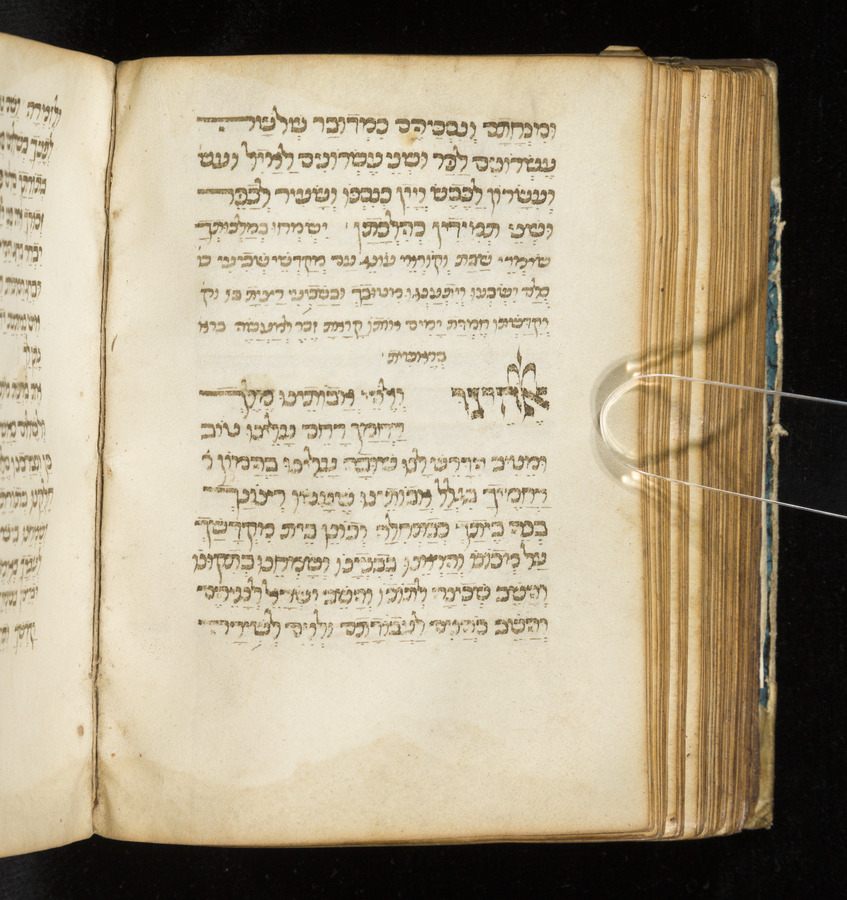 ומנחתם ונסכיהם כמדובר שלשה
עשרונים לפר ושני עשרונים לאיל ועש
ועשרון לכבש ויין כנסכו ושעיר לכפר
ושני תמידין כהלכתן ישמחו במלכותך
שומרי שבת וקוראי עונג עם מקדשי שביעי כו
כלם ישבעו ויתענגו מטובך ובשביעי רצית בו וק
וקדשתו חמדת ימים אותו קראת זכר למעשה ברא
בראשית
אלהינו ואלהי אבותינו מלך
רחמן רחם עלינו טוב
ומטיב הדרש לנו שובה עלינו בהמון ר
רחמיך בגלל אבותינו שעשו רצונך
בנה ביתך כבתחלה וכונן בית מקדשך
על מכונו והראינו בבנינו ושמחנו בתקונו
והשב שכינתך לתוכו והשב ישראל לנויהם
והשב כהנים לעבודתם ולוים לשירם